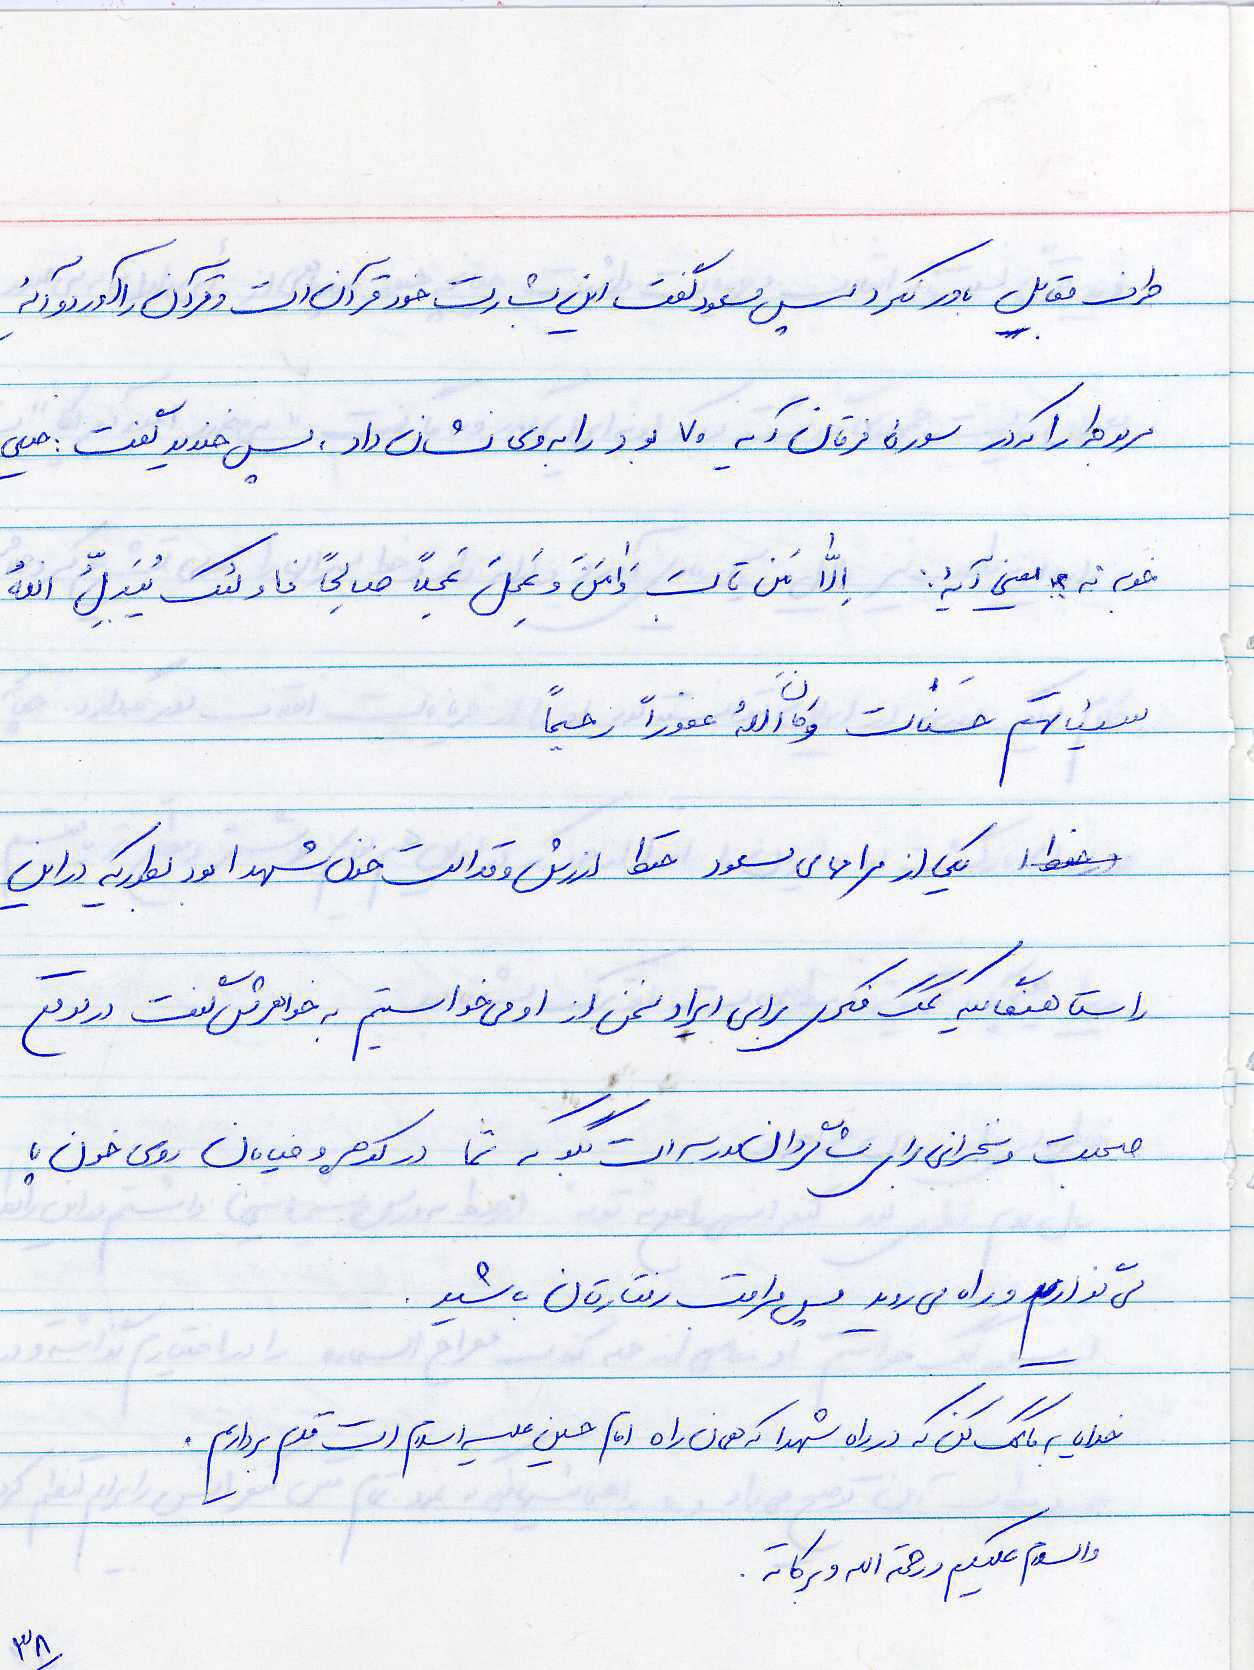 طرف مقابل باور نکرد پس مسعود گفت این بشارت خود قرآن است و قرآن را آورد و آیهٔ
مربوطه را که در سورهٔ فرقان آیه ۷۰ بود را به وی نشان داد، پس خندید گفت: خیلی
خوبه نه یعنی آیهٔ: اِلّا مَن تابَ وَامَنَ وَ عَمِلَ عَمِلاً صالِحاً فاولئک یُبَدِلُّ اللهُ
سیئاتهم حَسَنات وَکانَ اللهُ غفوراً رحیماً
یکی از مرامهای مسعود حفظ ارزش و قداست خون شهدا بود بطوریکه در این
راستا هنگامیکه کمک فکری برای ایراد سخن از او می خواستیم به خواهرش گفت در موقع
صحبت و سخنرانی برای شاگردان مدرسه ات بگو که شما در کوچه و خیابان روی خون پا
می گذارید و راه می روید پس مراقب رفتارتان باشید.
خدایا به ما کمک کن که در راه شهدا که همان راه امام حسین علیه السلام است قدم برداریم.
والسلام علیکم و رحمة الله و برکاته.
۳۸